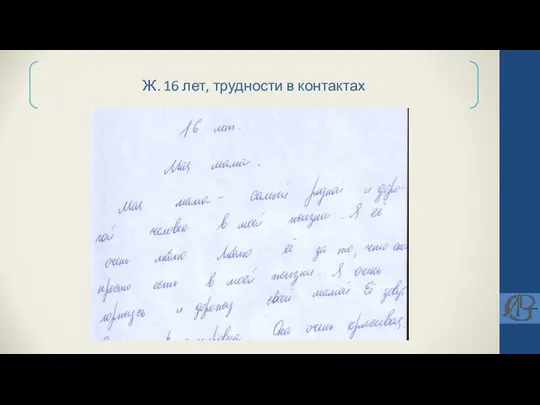 Ж. 16 лет, трудности в контактах
16 лет.
Моя мама.
Моя мама - самый родной и доро-
гой человек в моей жизни. Я её
очень люблю. Люблю её за то, что она
просто есть в моей жизни. Я очень
горжусь и дорожу своей мамой. Её зовут
Она очень красивая.